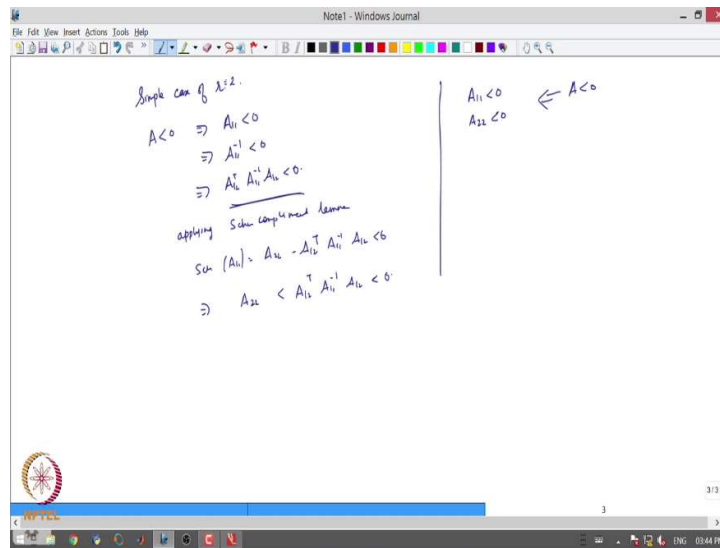 Note1 - Windows Journal
File Edit View Insert Actions Tools Help
Simple case of r=2.
A<0 ⇒ A₁₁<0
⇒ A₁₁⁻¹<0
⇒ A₁₂ᵀ A₁₁⁻¹ A₁₂<0.
applying Schur compliment lemma
Sch (A₁₁) = A₂₂ - A₁₂ᵀ A₁₁⁻¹ A₁₂ <0
⇒ A₂₂ < A₁₂ᵀ A₁₁⁻¹ A₁₂ <0.
A₁₁<0 ⇐ A<0
A₂₂<0
NPTEL
3/3
3
ENG 03:44 PM